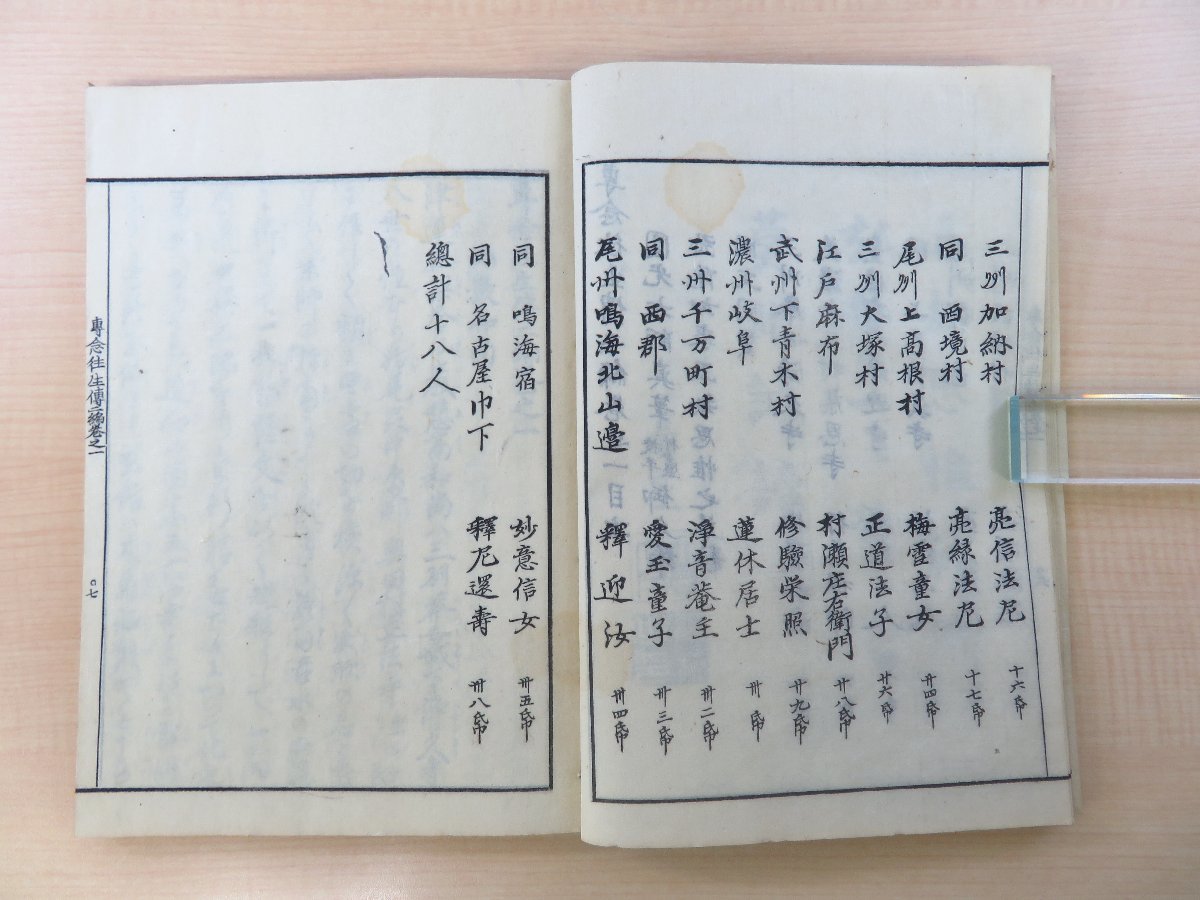 三州加納村 亮信法尼 十六帋
同 西境村 亮緑法尼 十七帋
尾州上高根村 梅雪童女 廿四帋
三州大塚村 正道法子 廿六帋
江戸麻布 村瀬庄右衛門 廿八帋
武州下青木村 修驗栄照 廿九帋
濃州岐阜 蓮休居士 卅帋
三州千万町村 淨音菴主 卅二帋
同 西郡 愛玉童子 卅三帋
尾州鳴海北山邉 釋迎汝 卅四帋
同 鳴海宿 妙意信女 卅五帋
同 名古屋巾下 釋尼還壽 卅八帋
總計十八人
專念往生傳二編巻之一 〇七